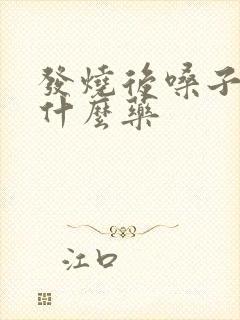 發燒後嗓子
什麼藥
江口